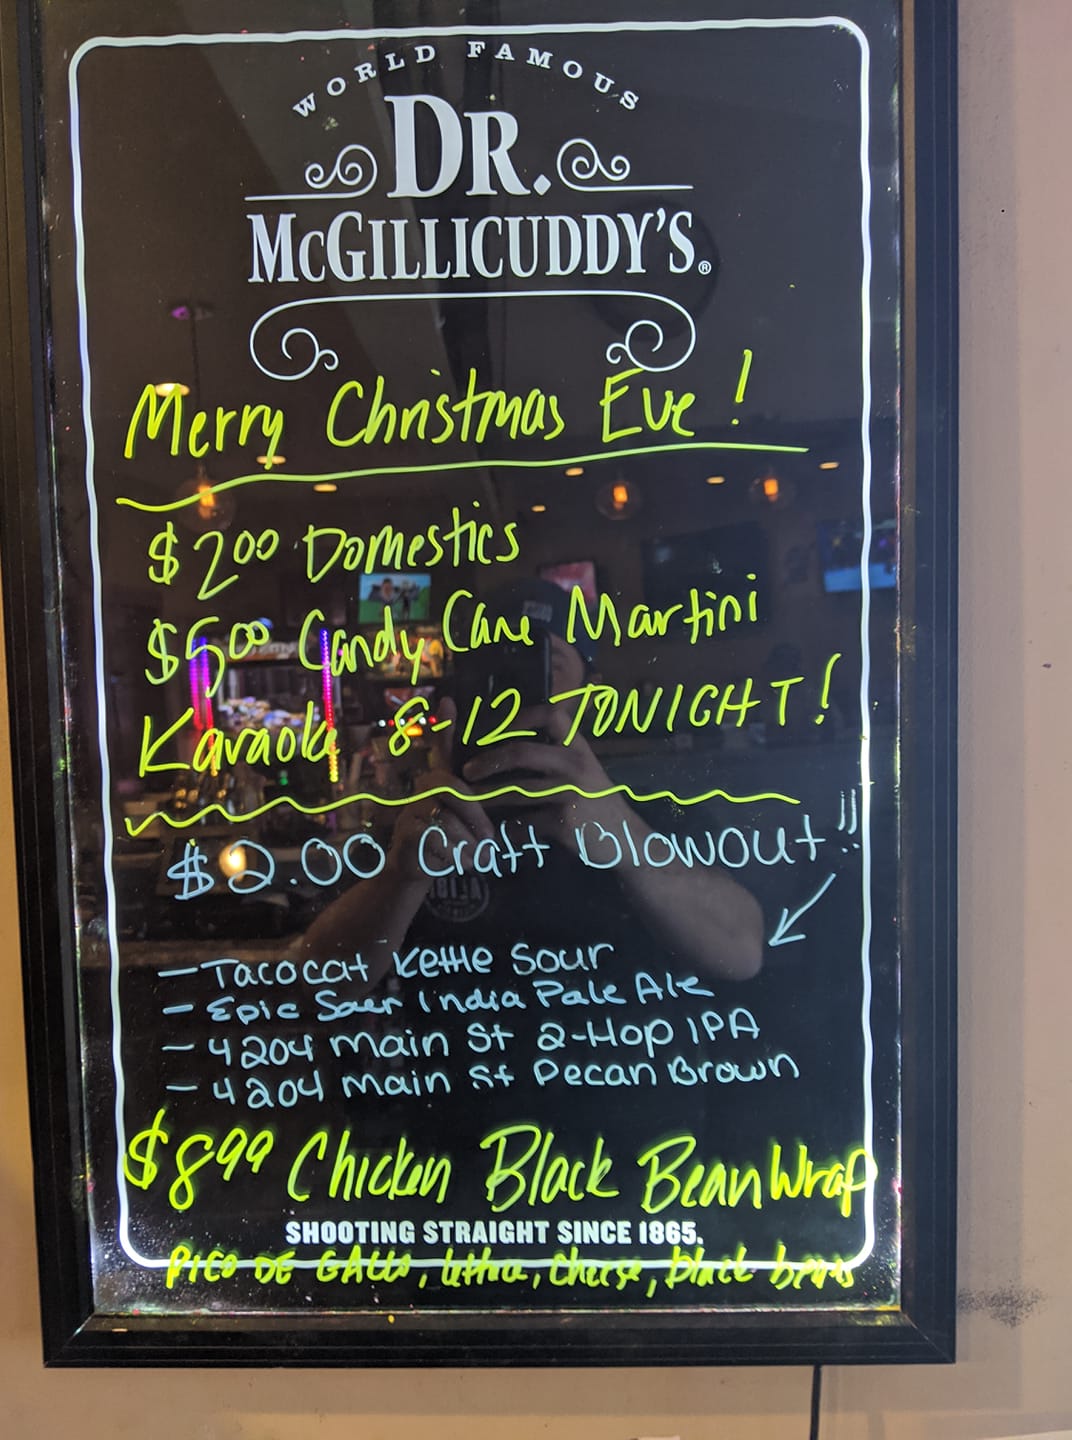 WORLD FAMOUS
DR.
MCGILLICUDDY'S®
Merry Christmas Eve!
$2.00 Domestics
$5.00 Candy Cane Martini
Karaoke 8-12 TONIGHT!
$2.00 Craft Blowout!!
- Tacocat Kettle Sour
- Epic Sour India Pale Ale
- 4204 Main St 2-Hop IPA
- 4204 Main St Pecan Brown
$8.99 Chicken Black Bean Wrap
SHOOTING STRAIGHT SINCE 1865.
PICO DE GALLO, lettuce, cheese, black beans